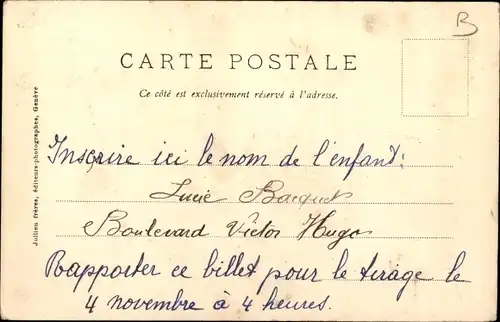 B
CARTE POSTALE
Ce côté est exclusivement réservé à l'adresse.
Jullien frères, éditeurs-photographes, Genève
Inscrire ici le nom de l'enfant:
Lucie Bacquet
Boulevard Victor Hugo
Rapporter ce billet pour le tirage le
4 novembre à 4 heures.